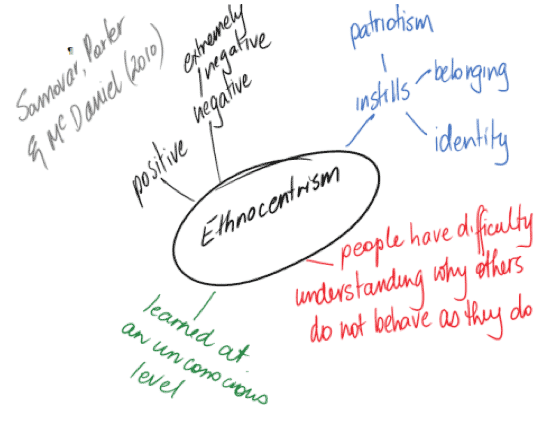 Samovar, Porter
& McDaniel (2010)
extremely
negative
negative
positive
Ethnocentrism
patriotism
instills
belonging
identity
people have difficulty
understanding why others
do not behave as they do
learned at
an unconscious
level